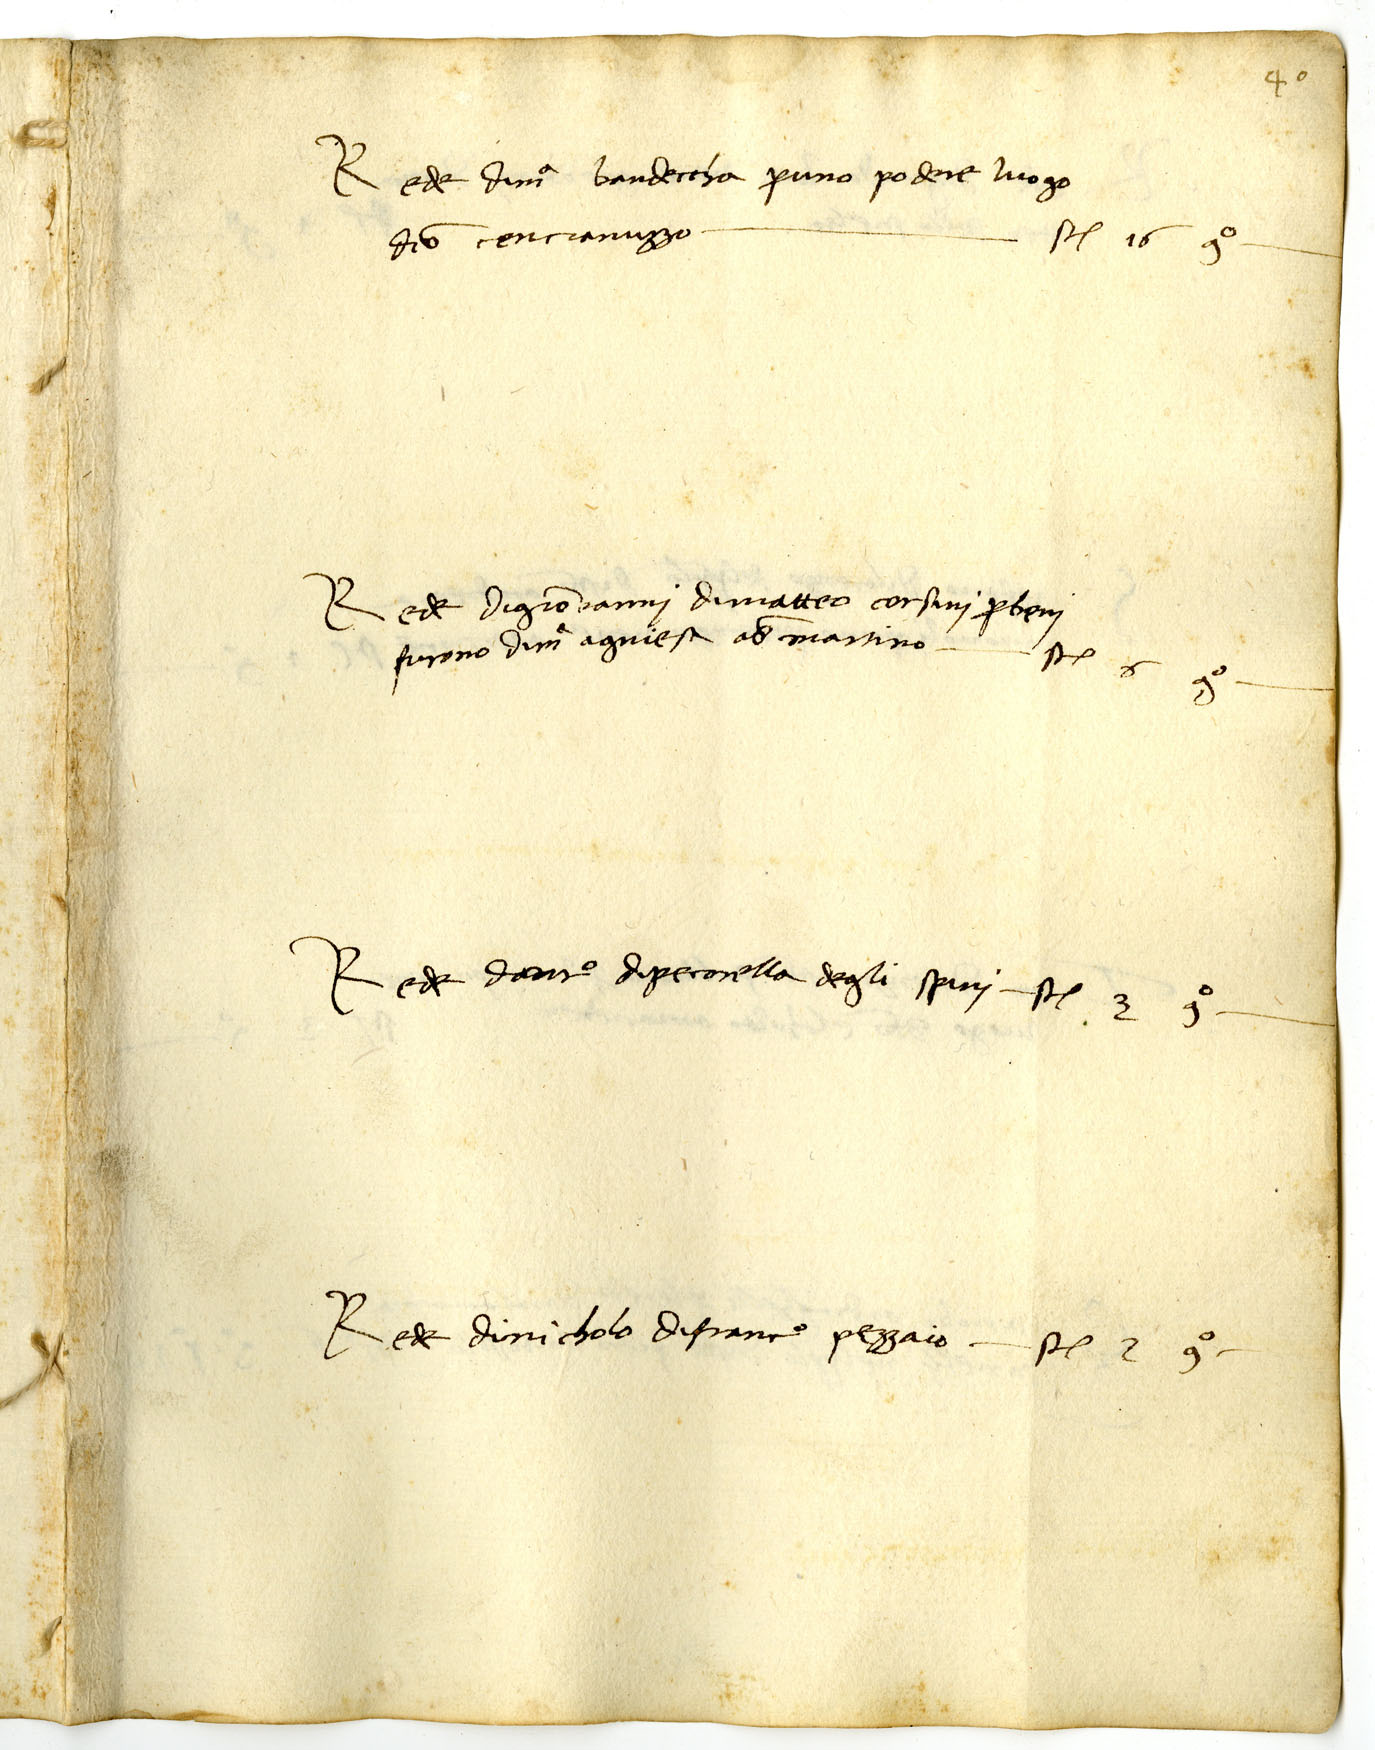 4°
Rede dimª bandeccha puno podere luogo
dto cenciannuzzo st 16 gº
Rede digiovanni dimatteo corsini pbeni
furono dimª agniesa martino st 6 gº
Rede dantº dipecorella degli spini st 3 gº
Rede dinicholo difrancº pezzaio st 2 gº